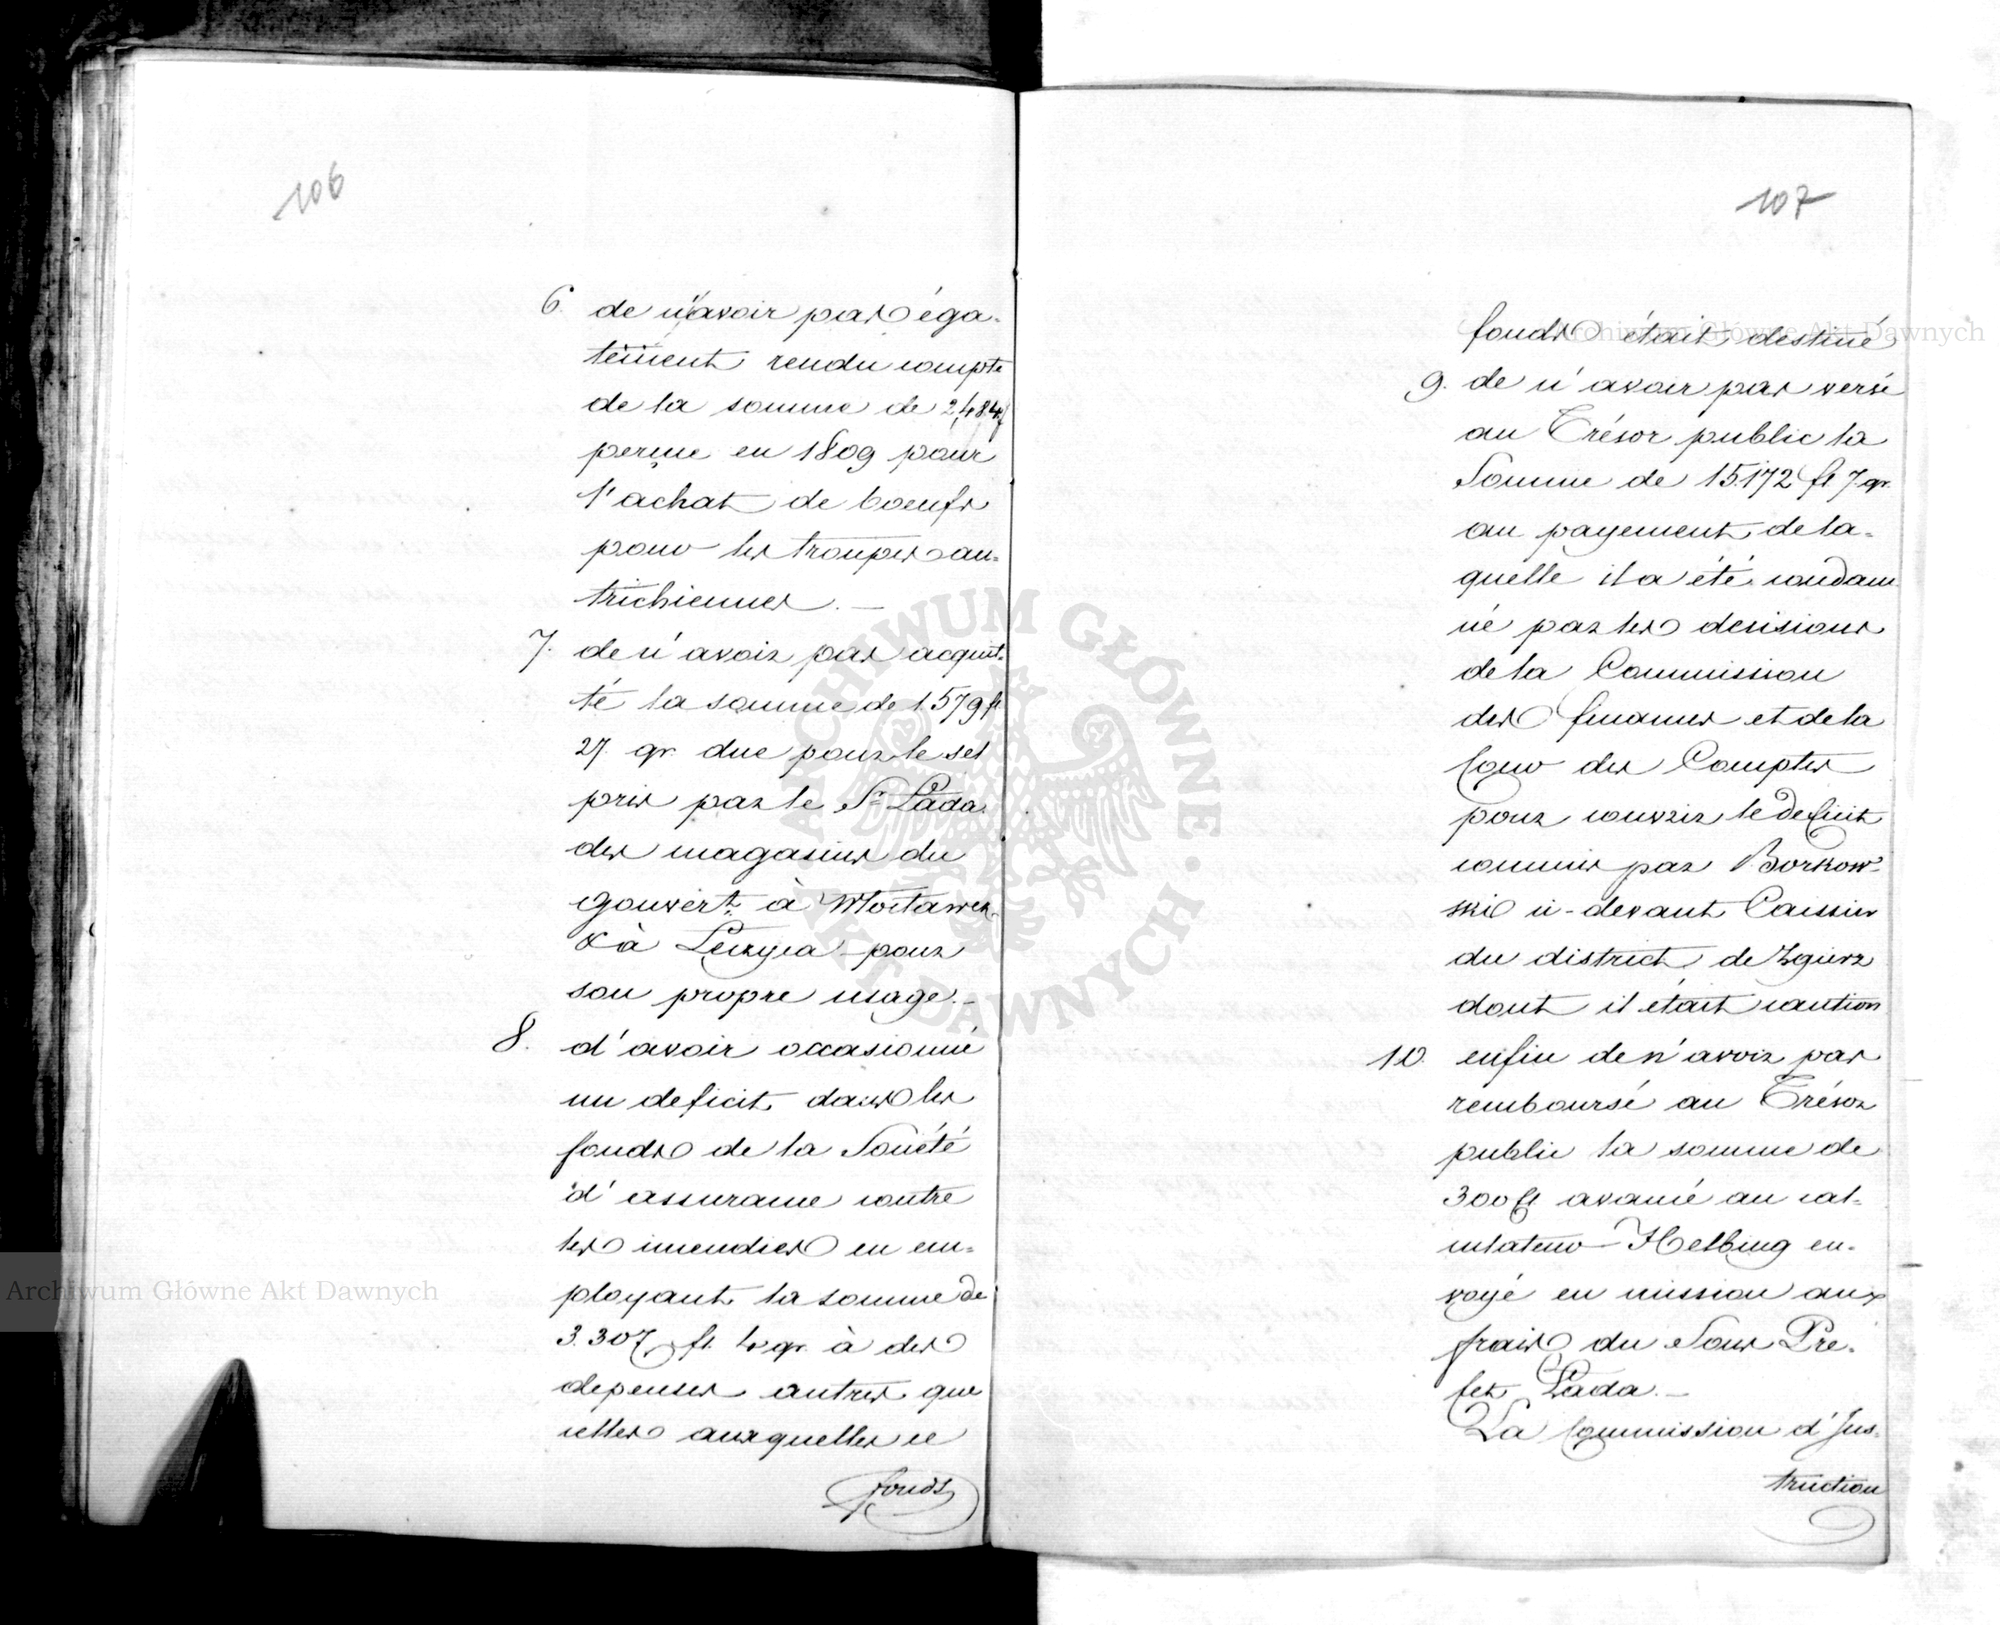 106
6. de n'avoir pas éga-
lement rendu compte
de la somme de 2,484 f
perçue en 1809 pour
l'achat de boeufs
pour les troupes au-
trichiennes. —
7. de n'avoir pas acquit-
té la somme de 1.579 fl
27. gr. due pour le sel
pris par le Sr Łada
des magasins du
gouvert. à Włocławek
& à Łęczyca pour
son propre usage. —
8. d'avoir occasionné
un deficit dans les
fonds de la Société
d'assurance contre
les incendies en em-
ployant la somme de
3.307 fl. 4 gr. à des
depenses autres que
celles auxquelles ce
fonds
107
fonds était destiné
9. de n'avoir pas versé
au Trésor public la
Somme de 15.172 fl 7 gr.
au payement de la-
quelle il a été condam
né par les decisions
de la Commission
des finances et de la
Cour des Comptes
pour couvrir le deficit
commis par Borkow-
ski ci-devant Caissier
du district de Zgierz
dont il était caution
10. enfin de n'avoir pas
remboursé au Trésor
public la somme de
300 fl avancé au cal-
culateur Helbing en-
voyé en mission aux
frais du Sous Pré-
fet Łada. —
La Commission d'Jns-
truction
Archiwum Główne Akt Dawnych
Archiwum Główne Akt Dawnych
ARCHIWUM GŁÓWNE · AKT DAWNYCH ·